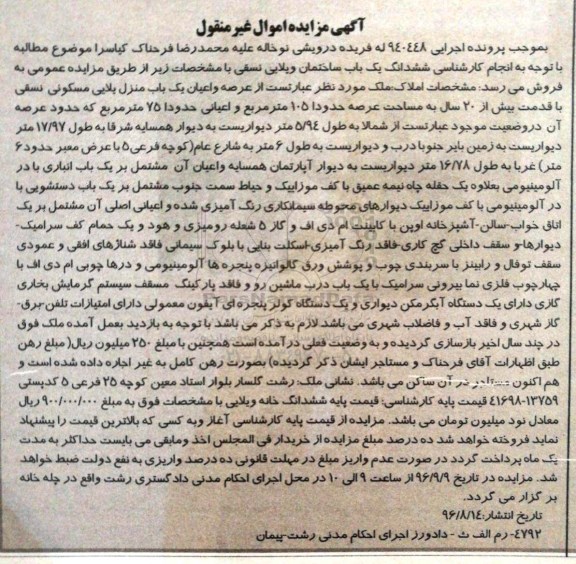 آگهی مزایده اموال غیر منقول
بموجب پرونده اجرایی ۹۴۰۴۴۸ له فریده درویشی نوخاله علیه محمدرضا فرحناک کیاسرا موضوع مطالبه
با توجه به انجام کارشناسی ششدانگ یک باب ساختمان ویلایی نسقی با مشخصات زیر از طریق مزایده عمومی به
فروش می رسد: مشخصات املاک:ملک مورد نظر عبارتست از عرصه واعیان یک باب منزل پلایی مسکونی نسقی
با قدمت بیش از ۲۰ سال به مساحت عرصه حدودا ۱۰۵ مترمربع و اعیانی حدودا ۷۵ مترمربع که حدود عرصه
آن دروضعیت موجود عبارتست از شمالا به طول ۵/۹۴ متر دیواریست به دیوار همسایه شرقا به طول ۱۷/۹۷ متر
دیواریست به زمین بایر جنوبا درب و دیواریست به طول ۶ متر به شارع عام(کوچه فرعی۵ با عرض معبر حدود ۶
متر) غربا به طول ۱۶/۷۸ متر دیواریست به دیوار آپارتمان همسایه واعیان آن مشتمل بر یک باب انباری با در
آلومینیومی بعلاوه یک حلقه چاه نیمه عمیق با کف موزاییک و حیاط سمت جنوب مشتمل بر یک باب دستشویی با
در آلومینیومی با کف موزاییک دیوارهای محوطه سیمانکاری رنگ آمیزی شده و اعیانی اصلی آن مشتمل بر یک
اتاق خواب-سالن-آشپزخانه اوپن با کابینت ام دی اف و گاز ۵ شعله رومیزی و هود و یک حمام کف سرامیک-
دیوارها-و سقف داخلی گچ کاری-فاقد رنگ آمیزی-اسکلت بنایی با بلوک سیمانی فاقد شناژهای افقی و عمودی
سقف توفال و رابیتز با سربندی چوب و پوشش ورق گالوانیزه پنجره ها آلومینیومی و درها چوبی ام دی اف با
چهارچوب فلزی نما بیرونی سرامیک با یک باب درب ماشین رو و فاقد پارکینگ مسقف سیستم گرمایش بخاری
گازی دارای یک دستگاه آبگرمکن دیواری و یک دستگاه کولر پنجره ای آیفون معمولی دارای امتیازات تلفن-برق-
گاز شهری و فاقد آب و فاضلاب شهری می باشد لازم به ذکر می باشد با توجه به بازدید بعمل آمده ملک فوق
در چند سال اخیر بازسازی گردیده و به وضعیت فعلی درآمده است همچنین با مبلغ ۲۵۰ میلیون ریال( مبلغ رهن
طبق اظهارات آقای فرحناک و مستاجر ایشان ذکر گردیده) بصورت رهن کامل به غیر اجاره داده شده است و
هم اکنون مستاجر در آن ساکن می باشد. نشانی ملک: رشت گلسار بلوار استاد معین کوچه ۲۵ فرعی ۵ کدپستی
۴۱۶۹۸-۱۳۷۵۹ قیمت پایه کارشناسی: قیمت پایه ششدانگ خانه ویلایی با مشخصات فوق به مبلغ ۹۰۰/۰۰۰/۰۰۰ ریال
معادل نود میلیون تومان می باشد. مزایده از قیمت پایه کارشناسی آغاز وبه کسی که بالاترین قیمت را پیشنهاد
نماید فروخته خواهد شد ده درصد مبلغ مزایده از خریدار فی المجلس اخذ ومابقی می بایست حداکثر به مدت
یک ماه پرداخت گردد در صورت عدم واریز مبلغ در مهلت قانونی ده درصد واریزی به نفع دولت ضبط خواهد
شد. مزایده در تاریخ ۹۶/۹/۹ از ساعت ۹ الی ۱۰ در محل اجرای احکام مدنی دادگستری رشت واقع در چله خانه
بر گزار می گردد.
تاریخ انتشار:۹۶/۸/۱۴
۴۷۹۲- رم الف ث - دادورز اجرای احکام مدنی رشت-پیمان